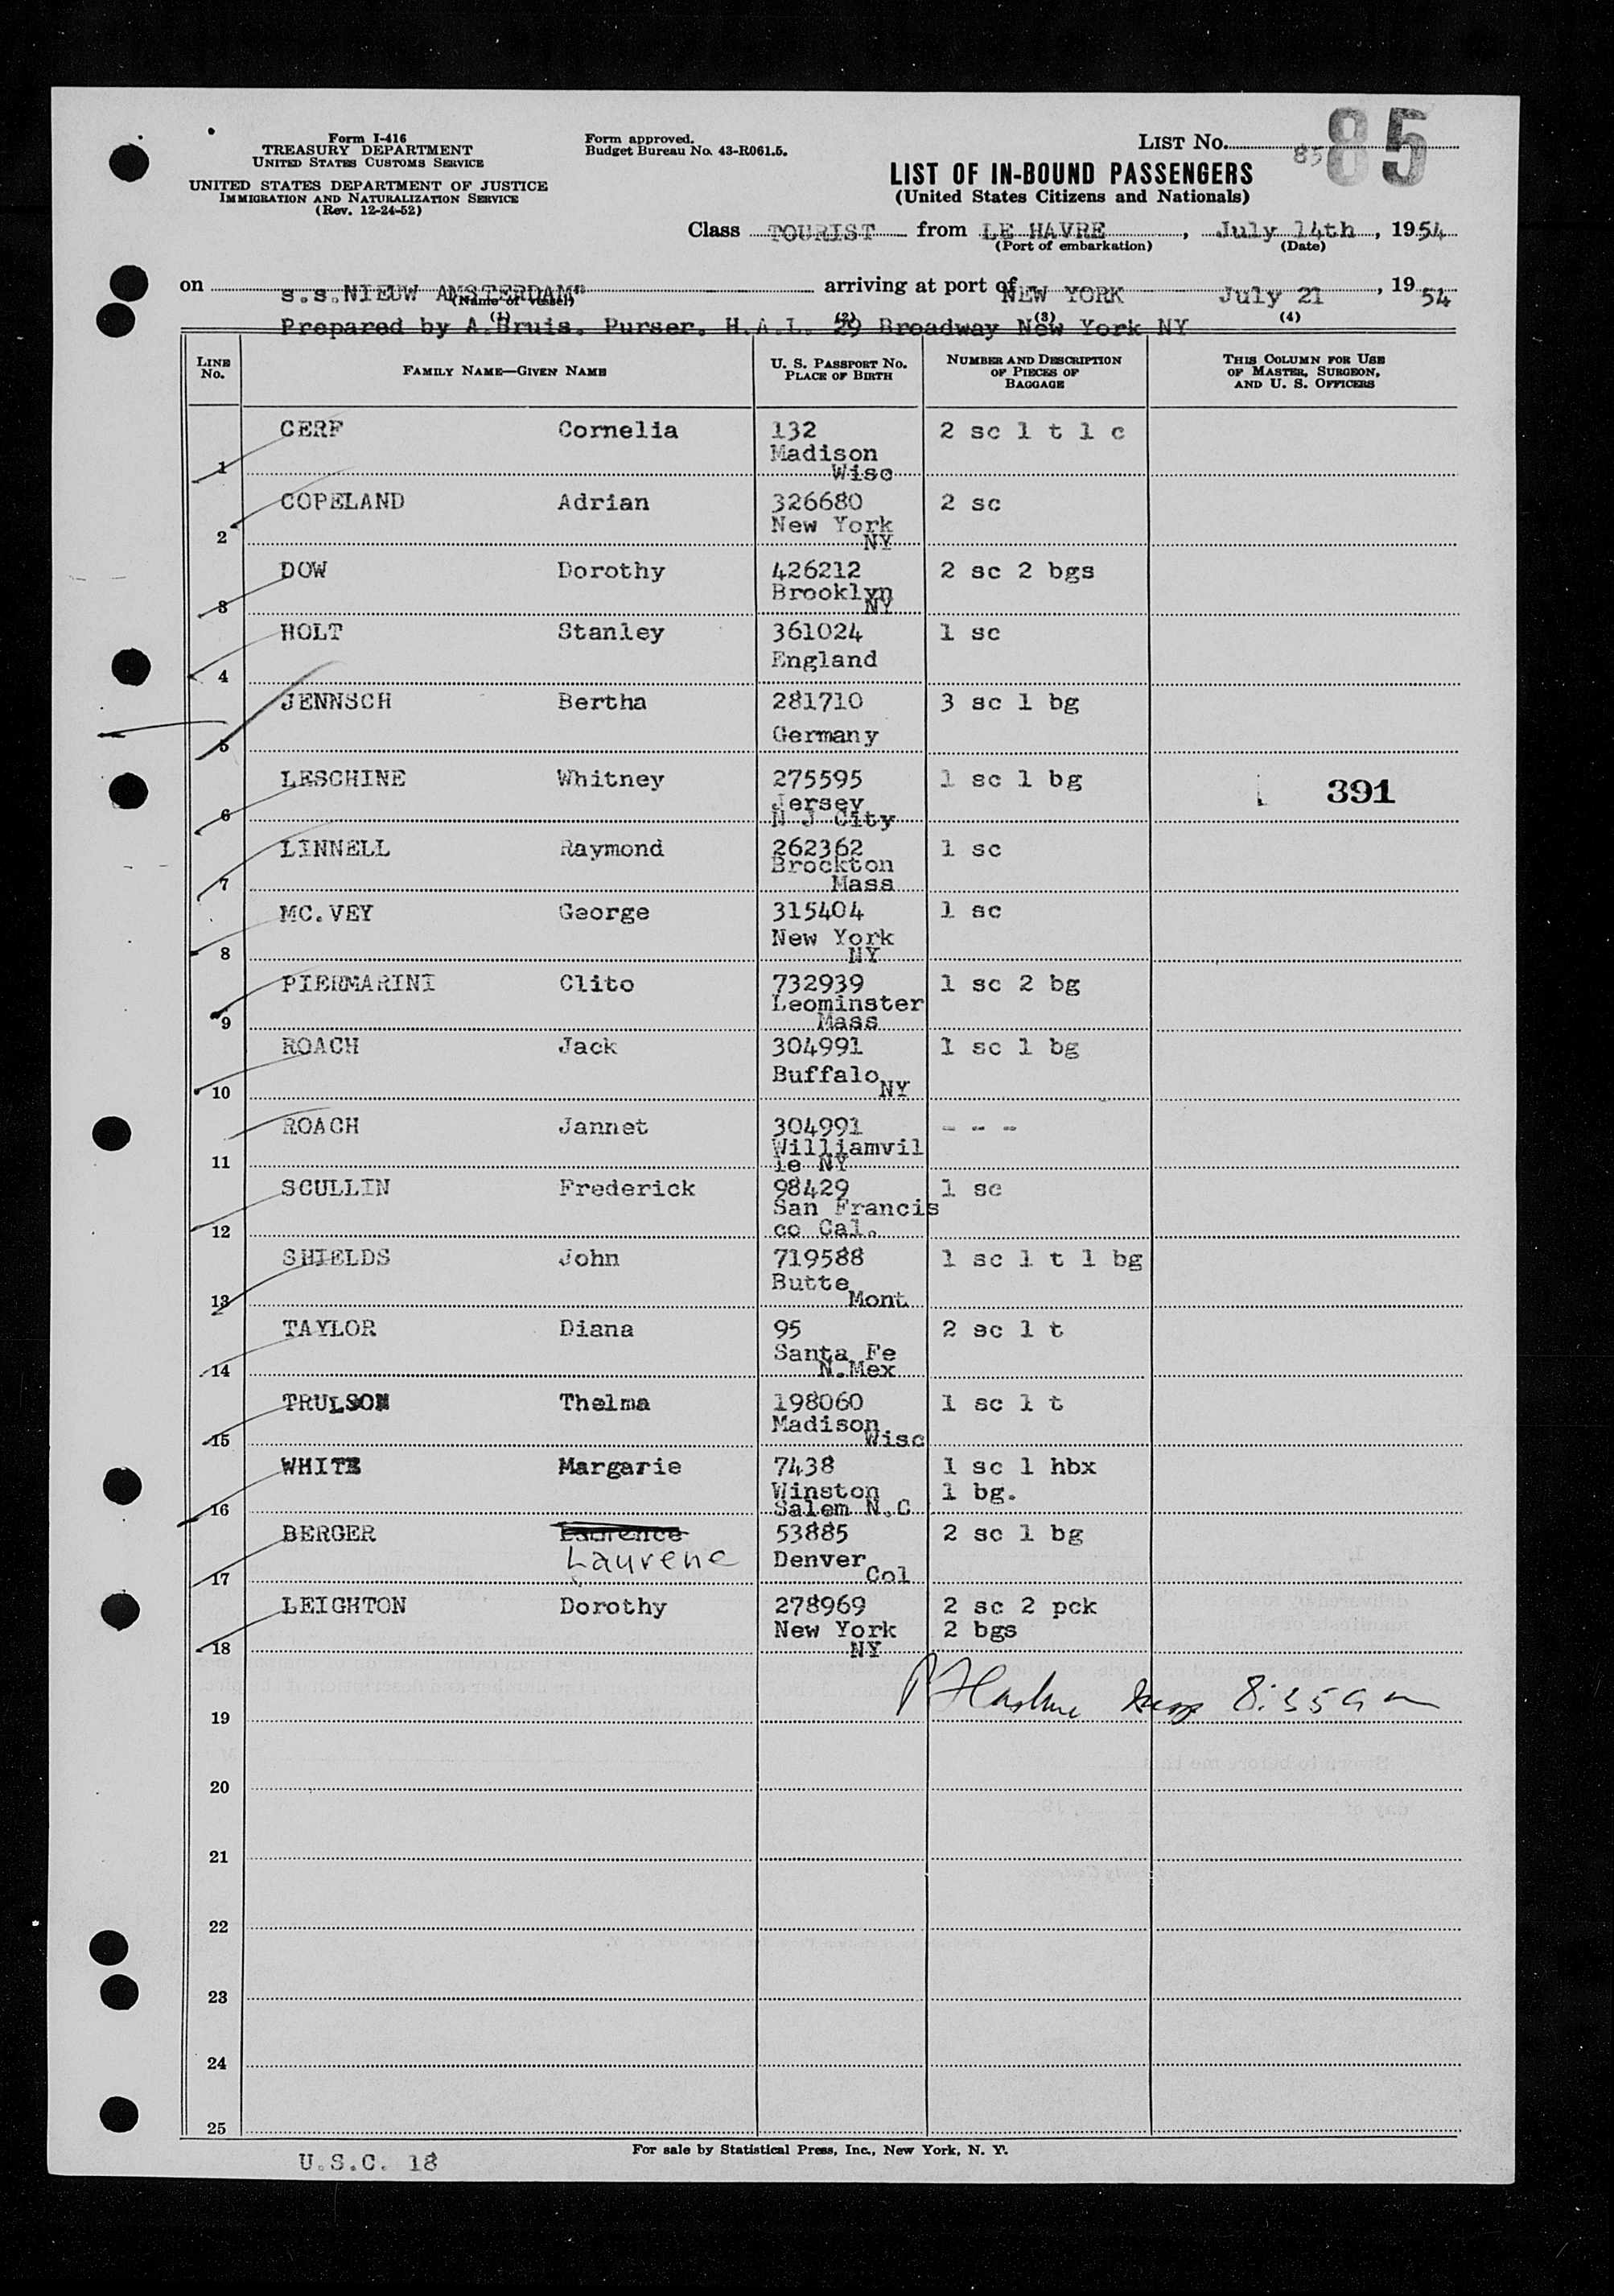 Form I-416
TREASURY DEPARTMENT
UNITED STATES CUSTOMS SERVICE
UNITED STATES DEPARTMENT OF JUSTICE
IMMIGRATION AND NATURALIZATION SERVICE
(Rev. 12-24-52)
Form approved.
Budget Bureau No. 43-R061.5.
LIST No. 85 85
LIST OF IN-BOUND PASSENGERS
(United States Citizens and Nationals)
Class TOURIST from LE HAVRE, July 14th, 1954
(Port of embarkation) (Date)
on s.s.NIEUW AMSTERDAM" arriving at port of NEW YORK July 21, 1954
(Name of vessel)
Prepared by A.Bruis. Purser. H.A.L. 29 Broadway New York NY
(1) (2) (3) (4)
LINE No. FAMILY NAME—GIVEN NAME U. S. PASSPORT No. PLACE OF BIRTH NUMBER AND DESCRIPTION OF PIECES OF BAGGAGE THIS COLUMN FOR USE OF MASTER, SURGEON, AND U. S. OFFICERS
CERF Cornelia 132 2 sc 1 t 1 c
Madison
1 Wisc
COPELAND Adrian 326680 2 sc
New York
2 NY
DOW Dorothy 426212 2 sc 2 bgs
Brooklyn
3 NY
HOLT Stanley 361024 1 sc
England
4
JENNSCH Bertha 281710 3 sc 1 bg
Germany
5
LESCHINE Whitney 275595 1 sc 1 bg 391
Jersey
6 N J City
LINNELL Raymond 262362 1 sc
Brockton
7 Mass
MC.VEY George 315404 1 sc
New York
8 NY
PIERMARINI Clito 732939 1 sc 2 bg
Leominster
9 Mass
ROACH Jack 304991 1 sc 1 bg
Buffalo
10 NY
ROACH Jannet 304991 - - -
Williamvil
11 le NY
SCULLIN Frederick 98429 1 sc
San Francis
12 co Cal.
SHIELDS John 719588 1 sc 1 t 1 bg
Butte
13 Mont
TAYLOR Diana 95 2 sc 1 t
Santa Fe
14 N.Mex
TRULSON Thelma 198060 1 sc 1 t
Madison
15 Wisc
WHITE Margarie 7438 1 sc 1 hbx
Winston 1 bg.
16 Salem N.C
BERGER Laurence 53885 2 sc 1 bg
Laurene Denver
17 Col
LEIGHTON Dorothy 278969 2 sc 2 pck
New York 2 bgs
18 NY
8:35 am
19
20
21
22
23
24
25
For sale by Statistical Press, Inc., New York, N. Y.
U.S.C. 18